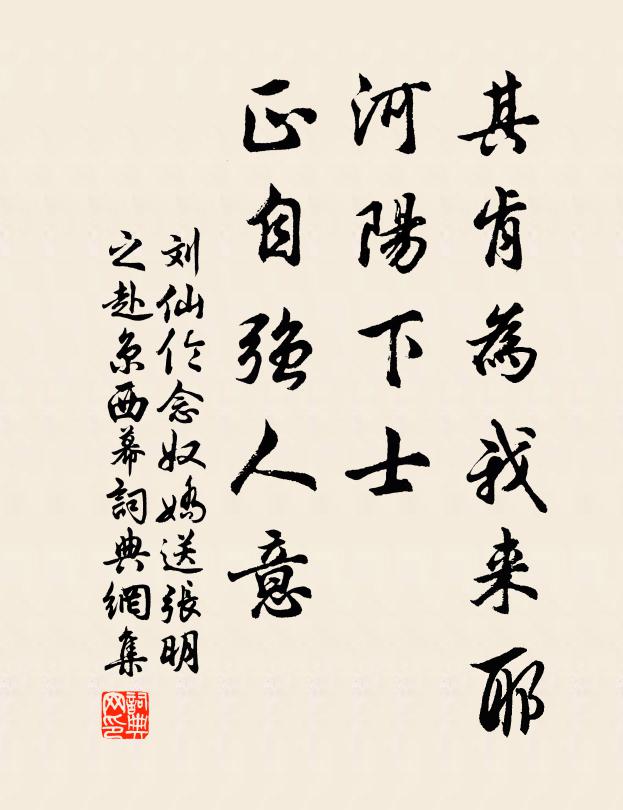 其肯为我来耶
河陽下士
正自強人意
刘仙伦念奴嬌送張明
之赴京西幕詞典網集
詞典网印